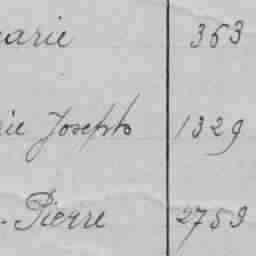 arie 363
ie Joseph 1329
- Pierre 2759